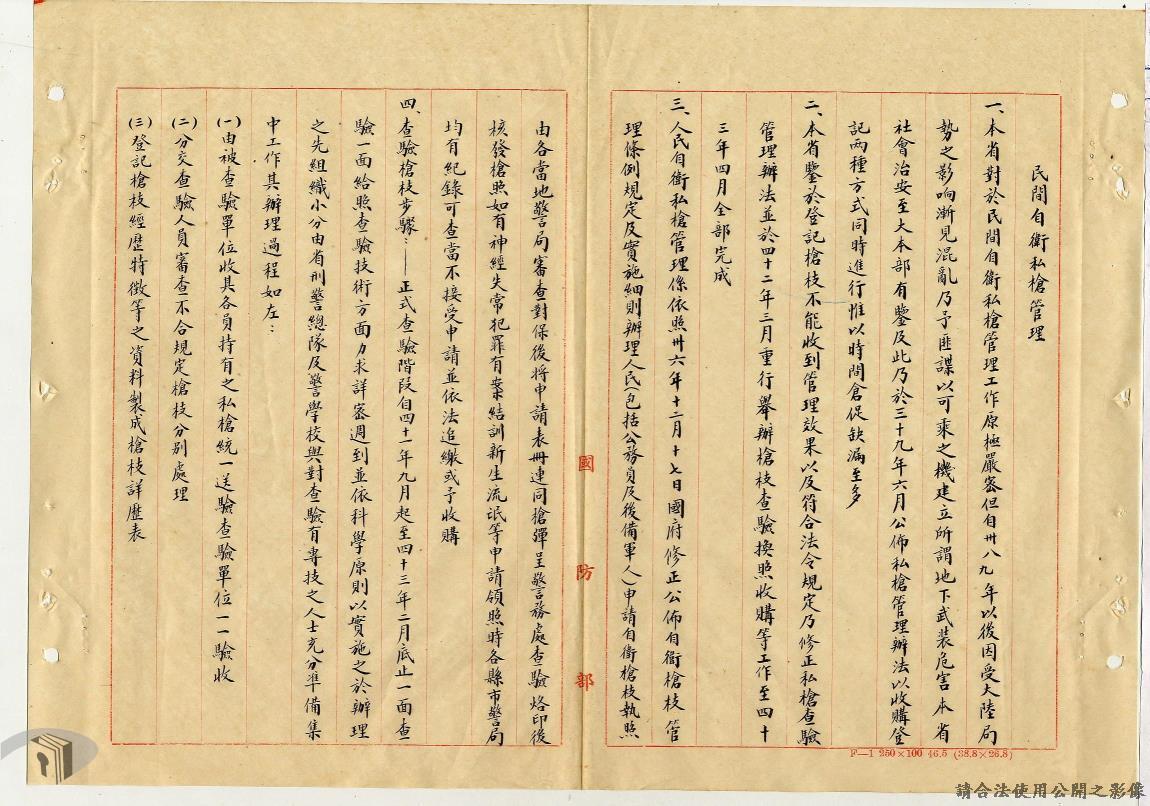 民間自衛私槍管理
一、本省對於民間自衛私槍管理工作原極嚴密但自卅八九年以後因受大陸局
勢之影响漸見混亂乃予匪諜以可乘之機建立所謂地下武装危害本省
社會治安至大本部有鑒及此乃於三十九年六月公佈私槍管理辦法以收購登
記两種方式同時進行惟以時間倉促缺漏至多
二、本省鑒於登記槍枝不能收到管理效果以及符合法令規定乃修正私槍查驗
管理辦法並於四十二年三月重行舉辦槍枝查驗換照收購等工作至四十
三年四月全部完成
三、人民自衛私槍管理係依照卅六年十二月十七日國府修正公佈自衛槍枝管
理條例規定及實施細則辦理人民(包括公務員及後備軍人)申請自衛槍枝執照
由各當地警局審查對保後將申請表冊連同槍彈呈警務處查驗烙印後
核發槍照如有神經失常犯罪有案結訓新生流氓等申請領照時各縣市警局
均有紀錄可查當不接受申請並依法追繳或予收購
四、查驗槍枝步驟：——正式查驗階段自四十二年九月起至四十三年二月底止一面查
驗一面給照查驗技術方面力求詳密週到並依科學原則以實施之於辦理
之先組織小分由省刑警總隊及警學校與對查驗有專技之人士充分準備集
中工作其辦理過程如左：
(一)由被查驗單位收其各員持有之私槍統一送驗查驗單位一一驗收
(二)分交查驗人員審查不合規定槍枝分別處理
(三)登記槍枝經歷特徵等之資料製成槍枝詳歷表
國防部
F—1 250×100 46.5 (38.8×26.8)
請合法使用公開之影像